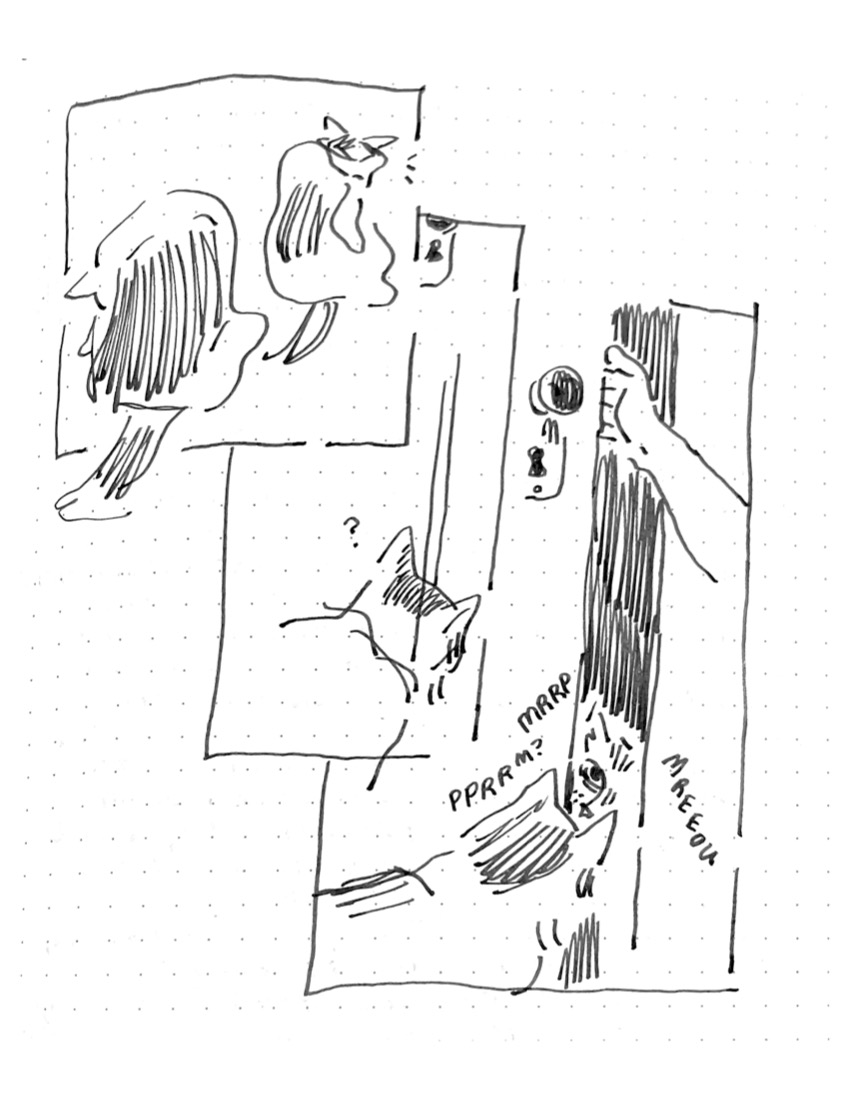 ?
MRRP
PPRRM?
MREEOU